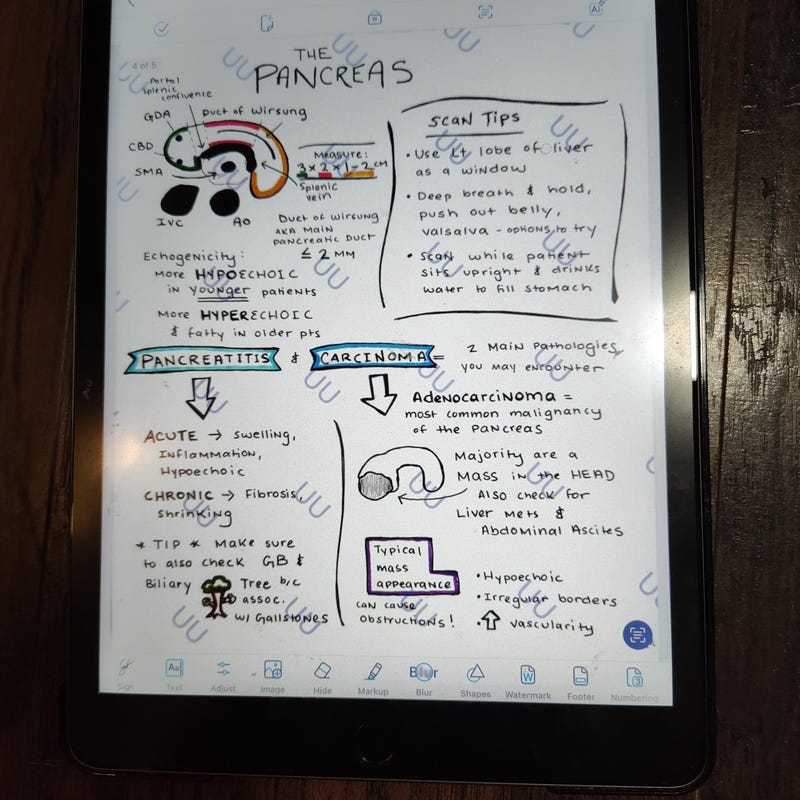 4 of 5
THE
PANCREAS
Portal
splenic
confluence
GDA
Duct of Wirsung
CBD
SMA
IVC
AO
Measure:
3 x 2 x 1-2 cm
Splenic
vein
Duct of Wirsung
AKA Main
pancreatic Duct
≤ 2 MM
Echogenicity:
More HYPOECHOIC
in younger patients
More HYPERECHOIC
& fatty in older pts
SCAN TIPS
• Use Lt lobe of liver
as a window
• Deep breath & hold,
push out belly,
valsalva - options to try
• Scan while patient
sits upright & drinks
water to fill stomach
PANCREATITIS & CARCINOMA =
2 Main Pathologies
you may encounter
ACUTE → Swelling,
Inflammation,
Hypoechoic
CHRONIC → Fibrosis,
shrinking
* TIP * Make sure
to also check GB &
Biliary Tree b/c
assoc.
w/ Gallstones
Adenocarcinoma =
most common malignancy
of the pancreas
Majority are a
Mass in the HEAD
Also check for
Liver Mets &
Abdominal Ascites
Typical
mass
appearance
can cause
obstructions!
• Hypoechoic
• Irregular borders
• ⇧ vascularity
UU
Sign
Text
Adjust
Image
Hide
Markup
Blur
Blur
Shapes
Watermark
Footer
Numbering